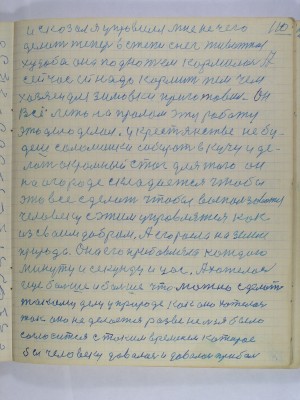 и сказал я управился мне нечего
делать теперь в степи снег животная
худоба она подножком кормилась А
сейчас её надо кормить тем чем
хозяин для зимовки приготовил. Он
всё лето напролом эту работу
это дело делал. У крестьянстве не бу-
дем соломинки собирать в кучу и де-
лать огромный стог для того он
на огороде складается чтобы
это всё сделать чтобы воспользоваться
человеку с этим управляться как
из своим добром. А сгорела на земле
природа. Она его прибавляла каждую
минуту и секунду и час. А хотелось
ещё больше и больше что можно сделать
такому делу у природе как оно хотелось
так оно не делается разве нельзя было
согласится с таким временем которое
бы человеку давалось и давалось прибыл